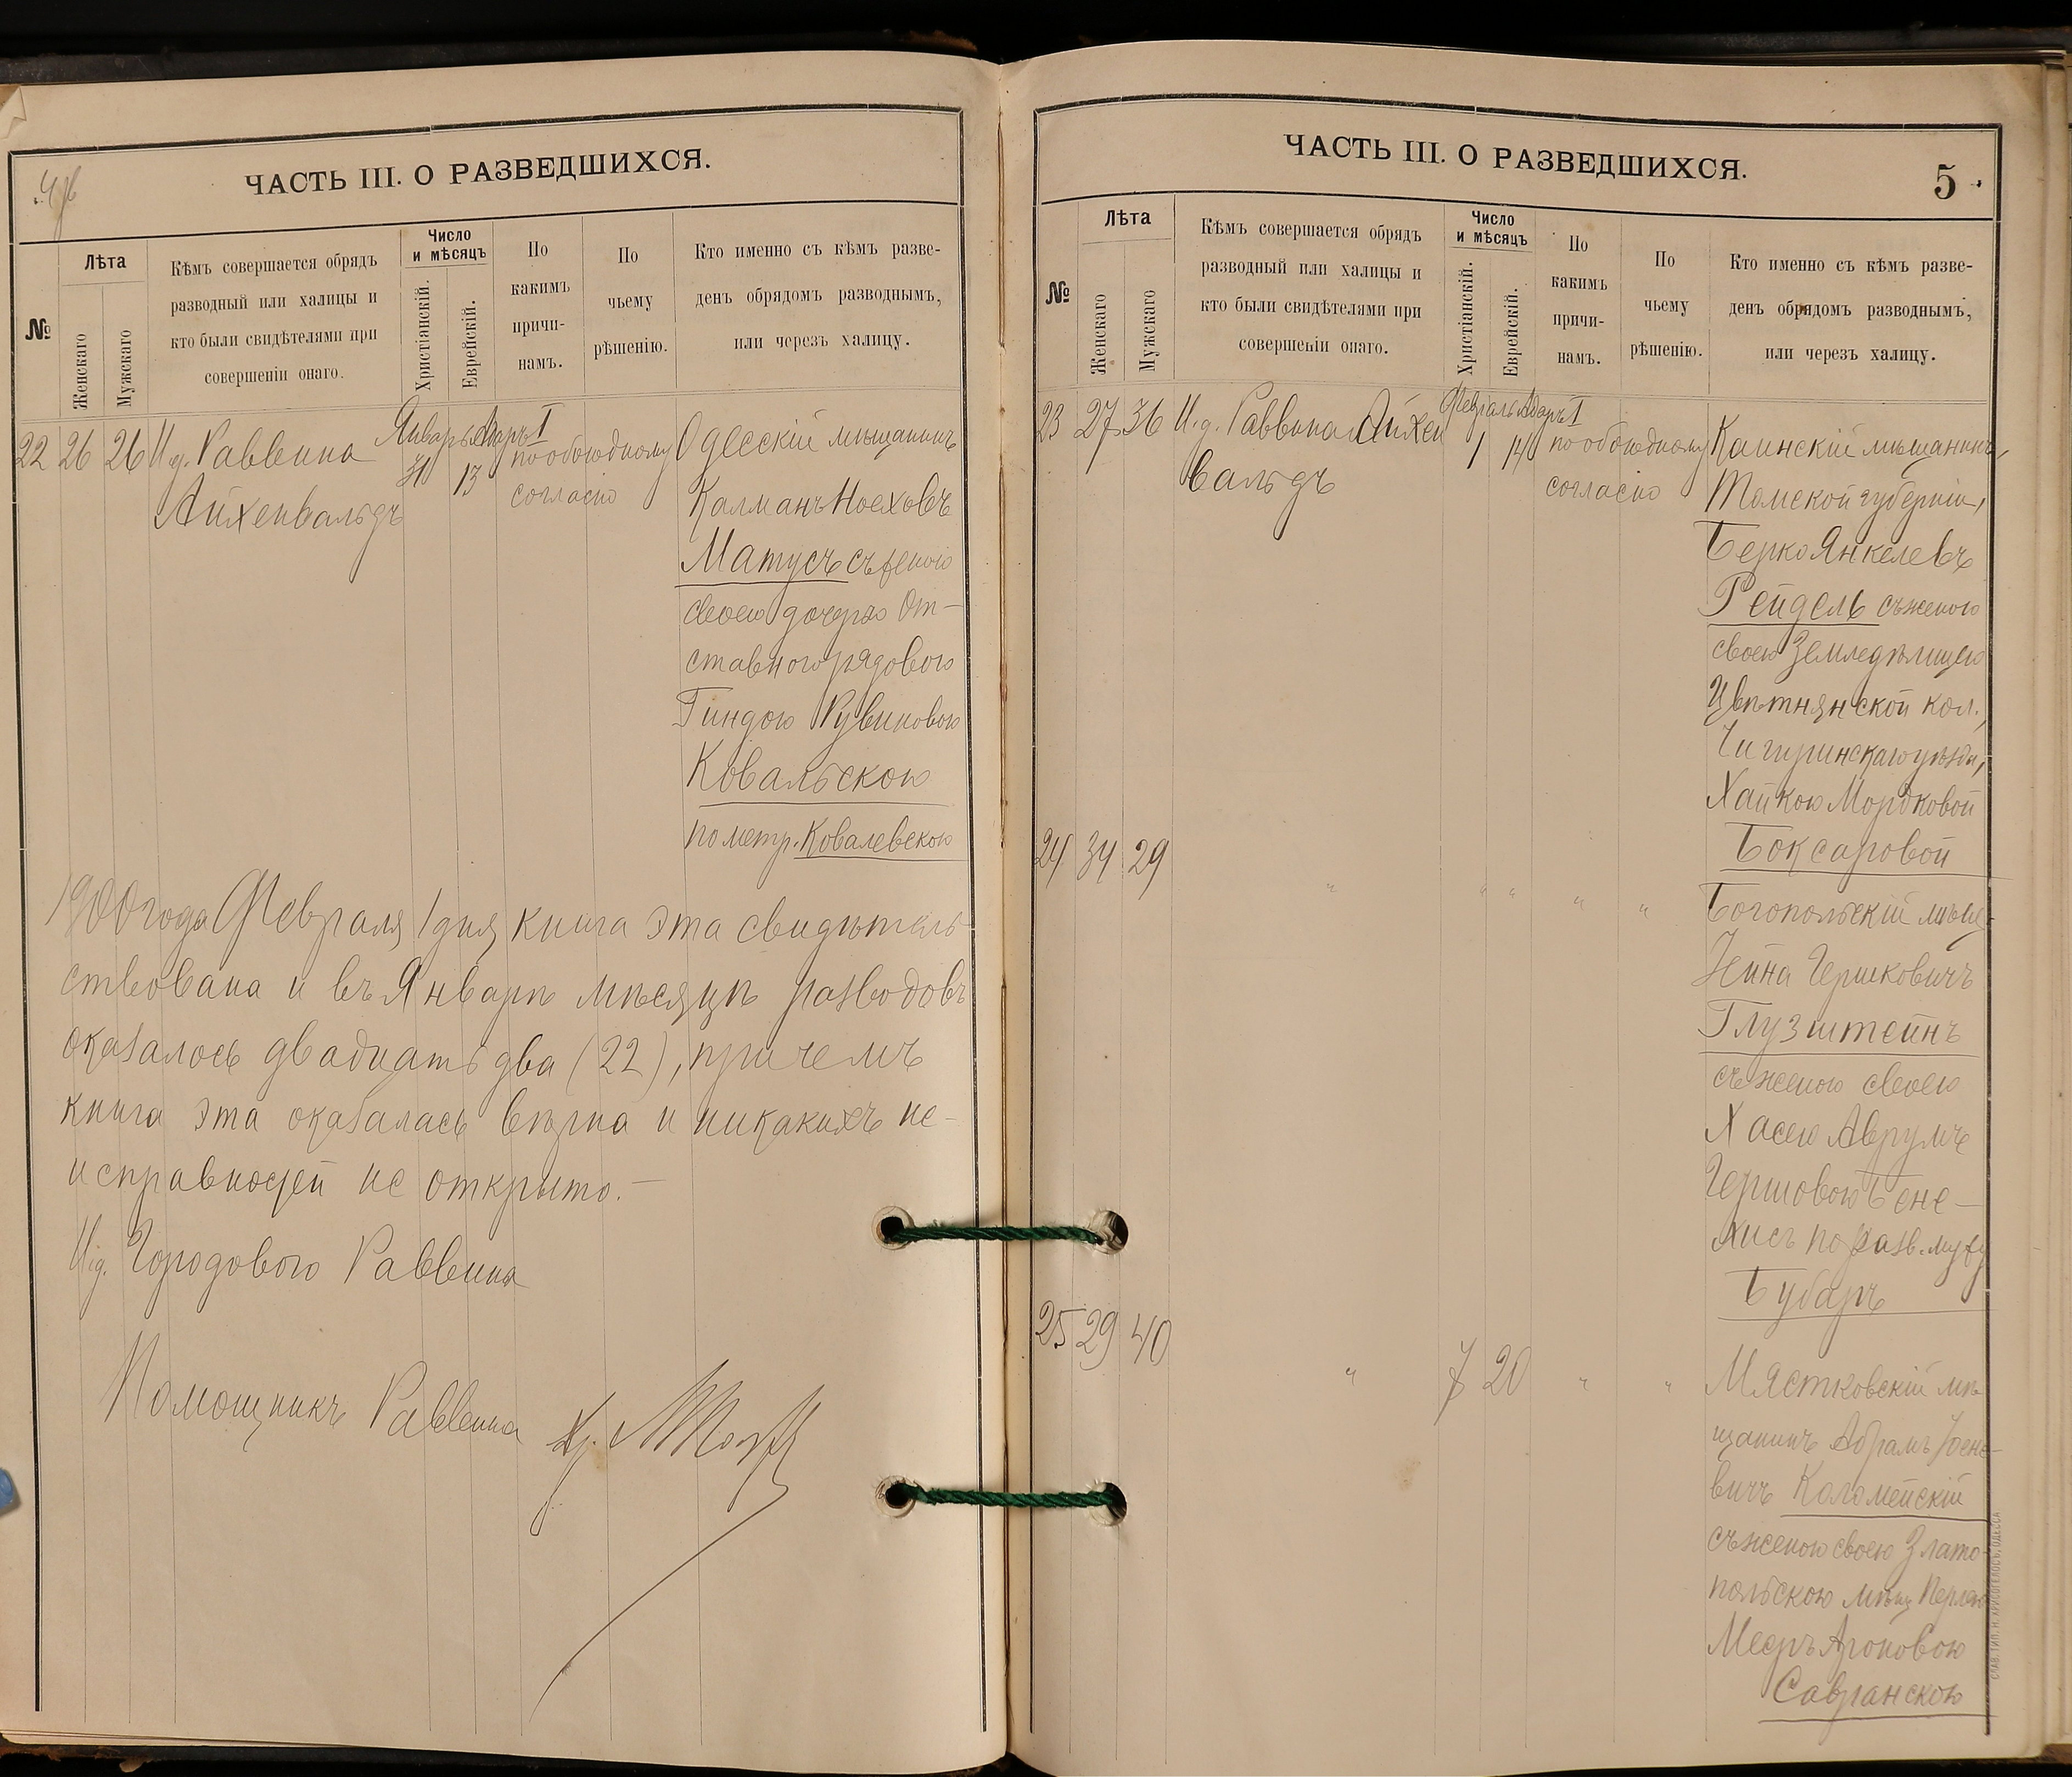 4 об
ЧАСТЬ III. О РАЗВЕДШИХСЯ.
№
Лѣта
Женскаго
Мужскаго
Кѣмъ совершается обрядъ
разводный или халицы и
кто были свидѣтелями при
совершеніи онаго.
Число
и мѣсяцъ
Христіанскій.
Еврейскій.
По
какимъ
причи-
намъ.
По
чьему
рѣшенію.
Кто именно съ кѣмъ разве-
денъ обрядомъ разводнымъ,
или черезъ халицу.
22 26 26 И.д. Раввина
Айхенвальдъ
Январь Адаръ I
31 13
по обоюдному
согласію
Одесскій мѣщанинъ
Калманъ Ноеховъ
Матусъ съ женою
своею дочерью От-
ставного рядового
Гиндою Рувиновою
Ковальскою
по метр. Ковалевскою
1900 года Февраля 1 дня книга эта свидѣтель-
ствована и въ Январѣ мѣсяцѣ разводовъ
оказалось двадцать два (22), при чемъ
книга эта оказалась вѣрна и никакихъ не-
исправностей не открыто.—
И.д. Городового Раввина
Помощникъ Раввина
ЧАСТЬ III. О РАЗВЕДШИХСЯ.
5
№
Лѣта
Женскаго
Мужскаго
Кѣмъ совершается обрядъ
разводный или халицы и
кто были свидѣтелями при
совершеніи онаго.
Число
и мѣсяцъ
Христіанскій.
Еврейскій.
По
какимъ
причи-
намъ.
По
чьему
рѣшенію.
Кто именно съ кѣмъ разве-
денъ обрядомъ разводнымъ,
или черезъ халицу.
23 27 36 И.д. Раввина Айхен
вальдъ
Февраль Адаръ I
1 14
по обоюдному
согласію
Каинскій мѣщанинъ,
Томской губерніи,
Берко Янкелевъ
Рейдель съ женою
своею Земледѣлицею
Цвѣтнянской кол.,
Чигиринскаго уѣзда,
Хайкою Мордковой
Боксаровой
24 34 29 " " " " "
Богопольскій мѣщ.
Гершковичъ
Глузштейнъ
съ женою своею
Хасею Аврумъ
Гершовою Бене-
по разв. мужу
Бубаръ
25 29 40 " 7 20 " "
Мястковскій мѣ
щанинъ Абрамъ
вичъ Коломейскій
съ женою своею Злато-
польскою мѣщ. Перлею
Ароновою
Савранскою
СЛАВ. ТИП. Н. ХРИСОГЕЛОСЪ, ОДЕССА